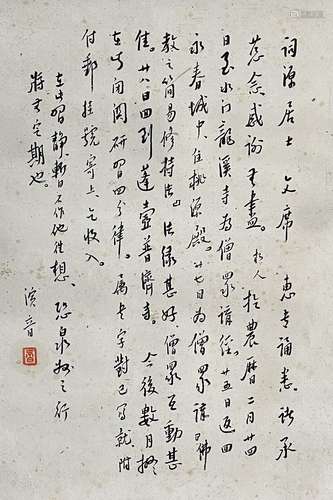 詞源居士文席 惠書誦悉諸承
慈念感謝無盡。朽人於農曆二月廿四
日至水门龍溪寺為僧眾講經。廿五日返回
永春城中住桃源殿。廿七日為僧眾講佛
教之簡易修持法。法緣甚好僧眾互動甚
佳。廿八日回到蓬壺普濟寺。今後數月擬
在此闭關研習四分律。属書字對已寫就附
付郵挂號寄上乞收入。
在此習静暫不作他往想。恐泉州之行
將無定期也。
演音